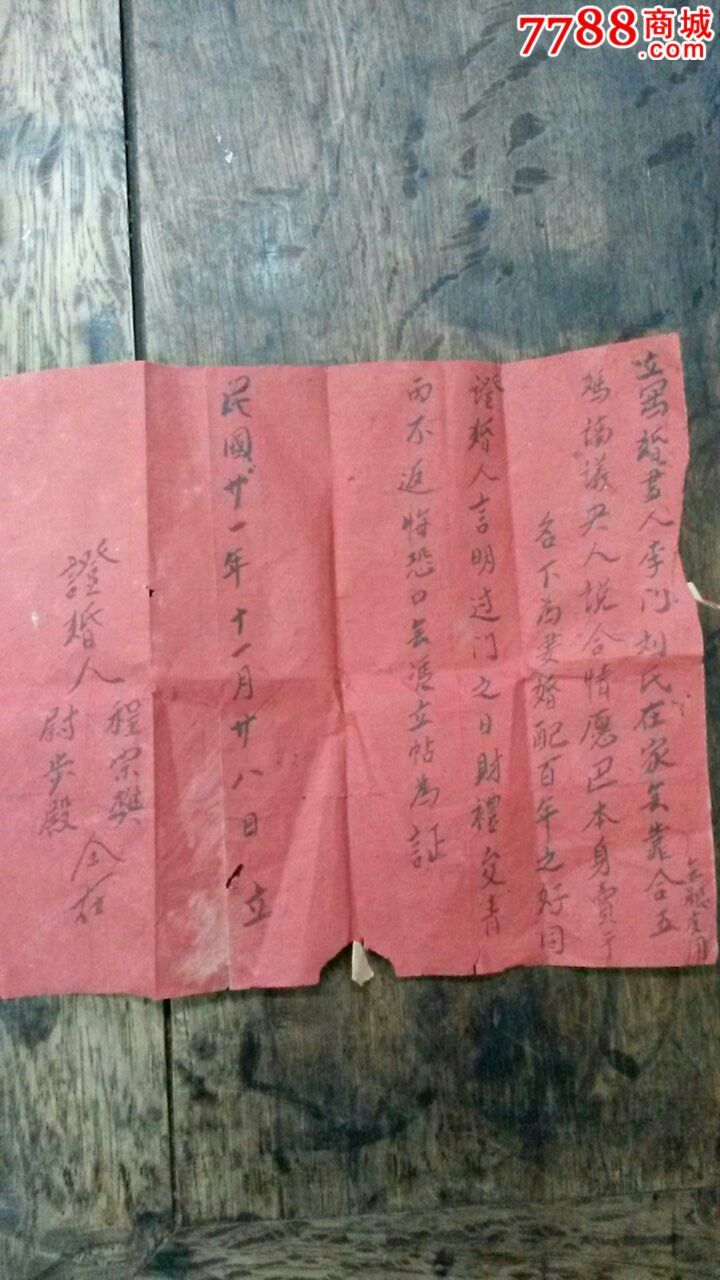 7788商城
.com
立寫婚書人李门刘氏在家無靠合五
媽謫議央人説合情愿巴本身賣于
各下為妻婚配百年之好同
證婚人言明过门之日財禮交青
而不返悔恐口無憑立帖為証
民國廿一年十一月廿八日立
證婚人
程宗
尉步殿
仝在